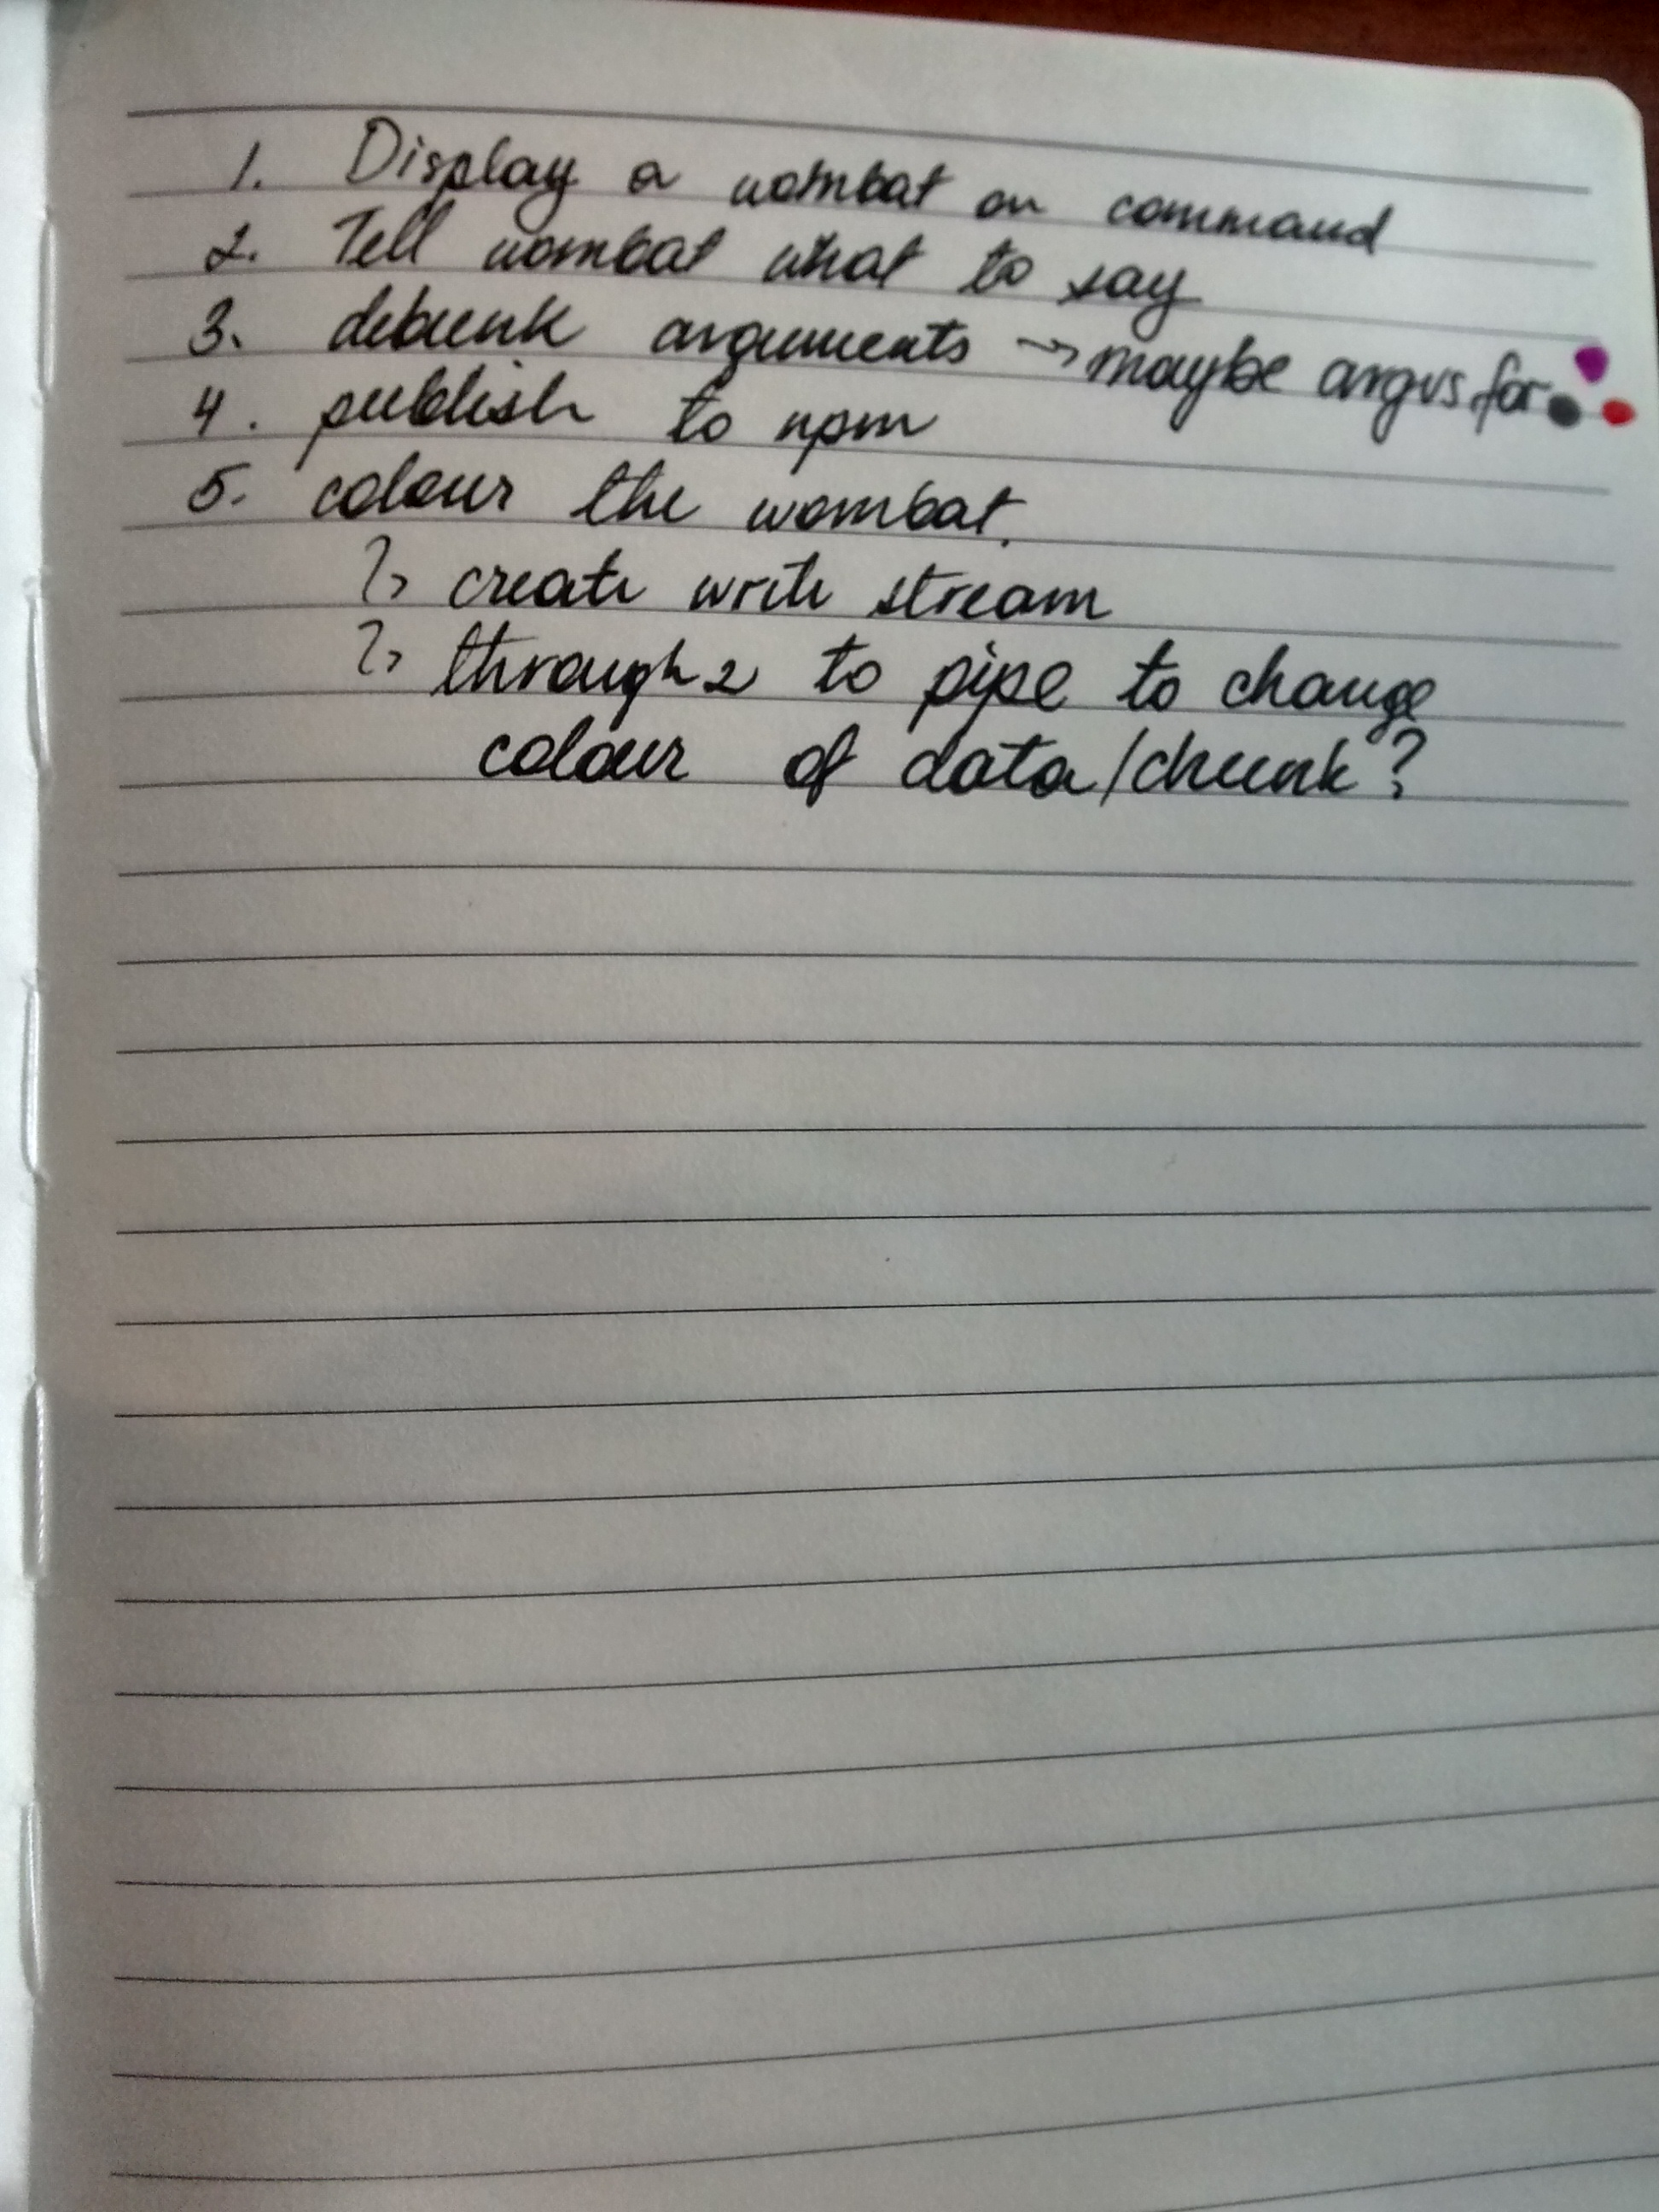 1. Display a wombat on command
2. Tell wombat what to say
3. debunk arguments → maybe argvs for
4. publish to npm
5. colour the wombat.
↳ create write stream
↳ through2 to pipe to change
colour of data/chunk?